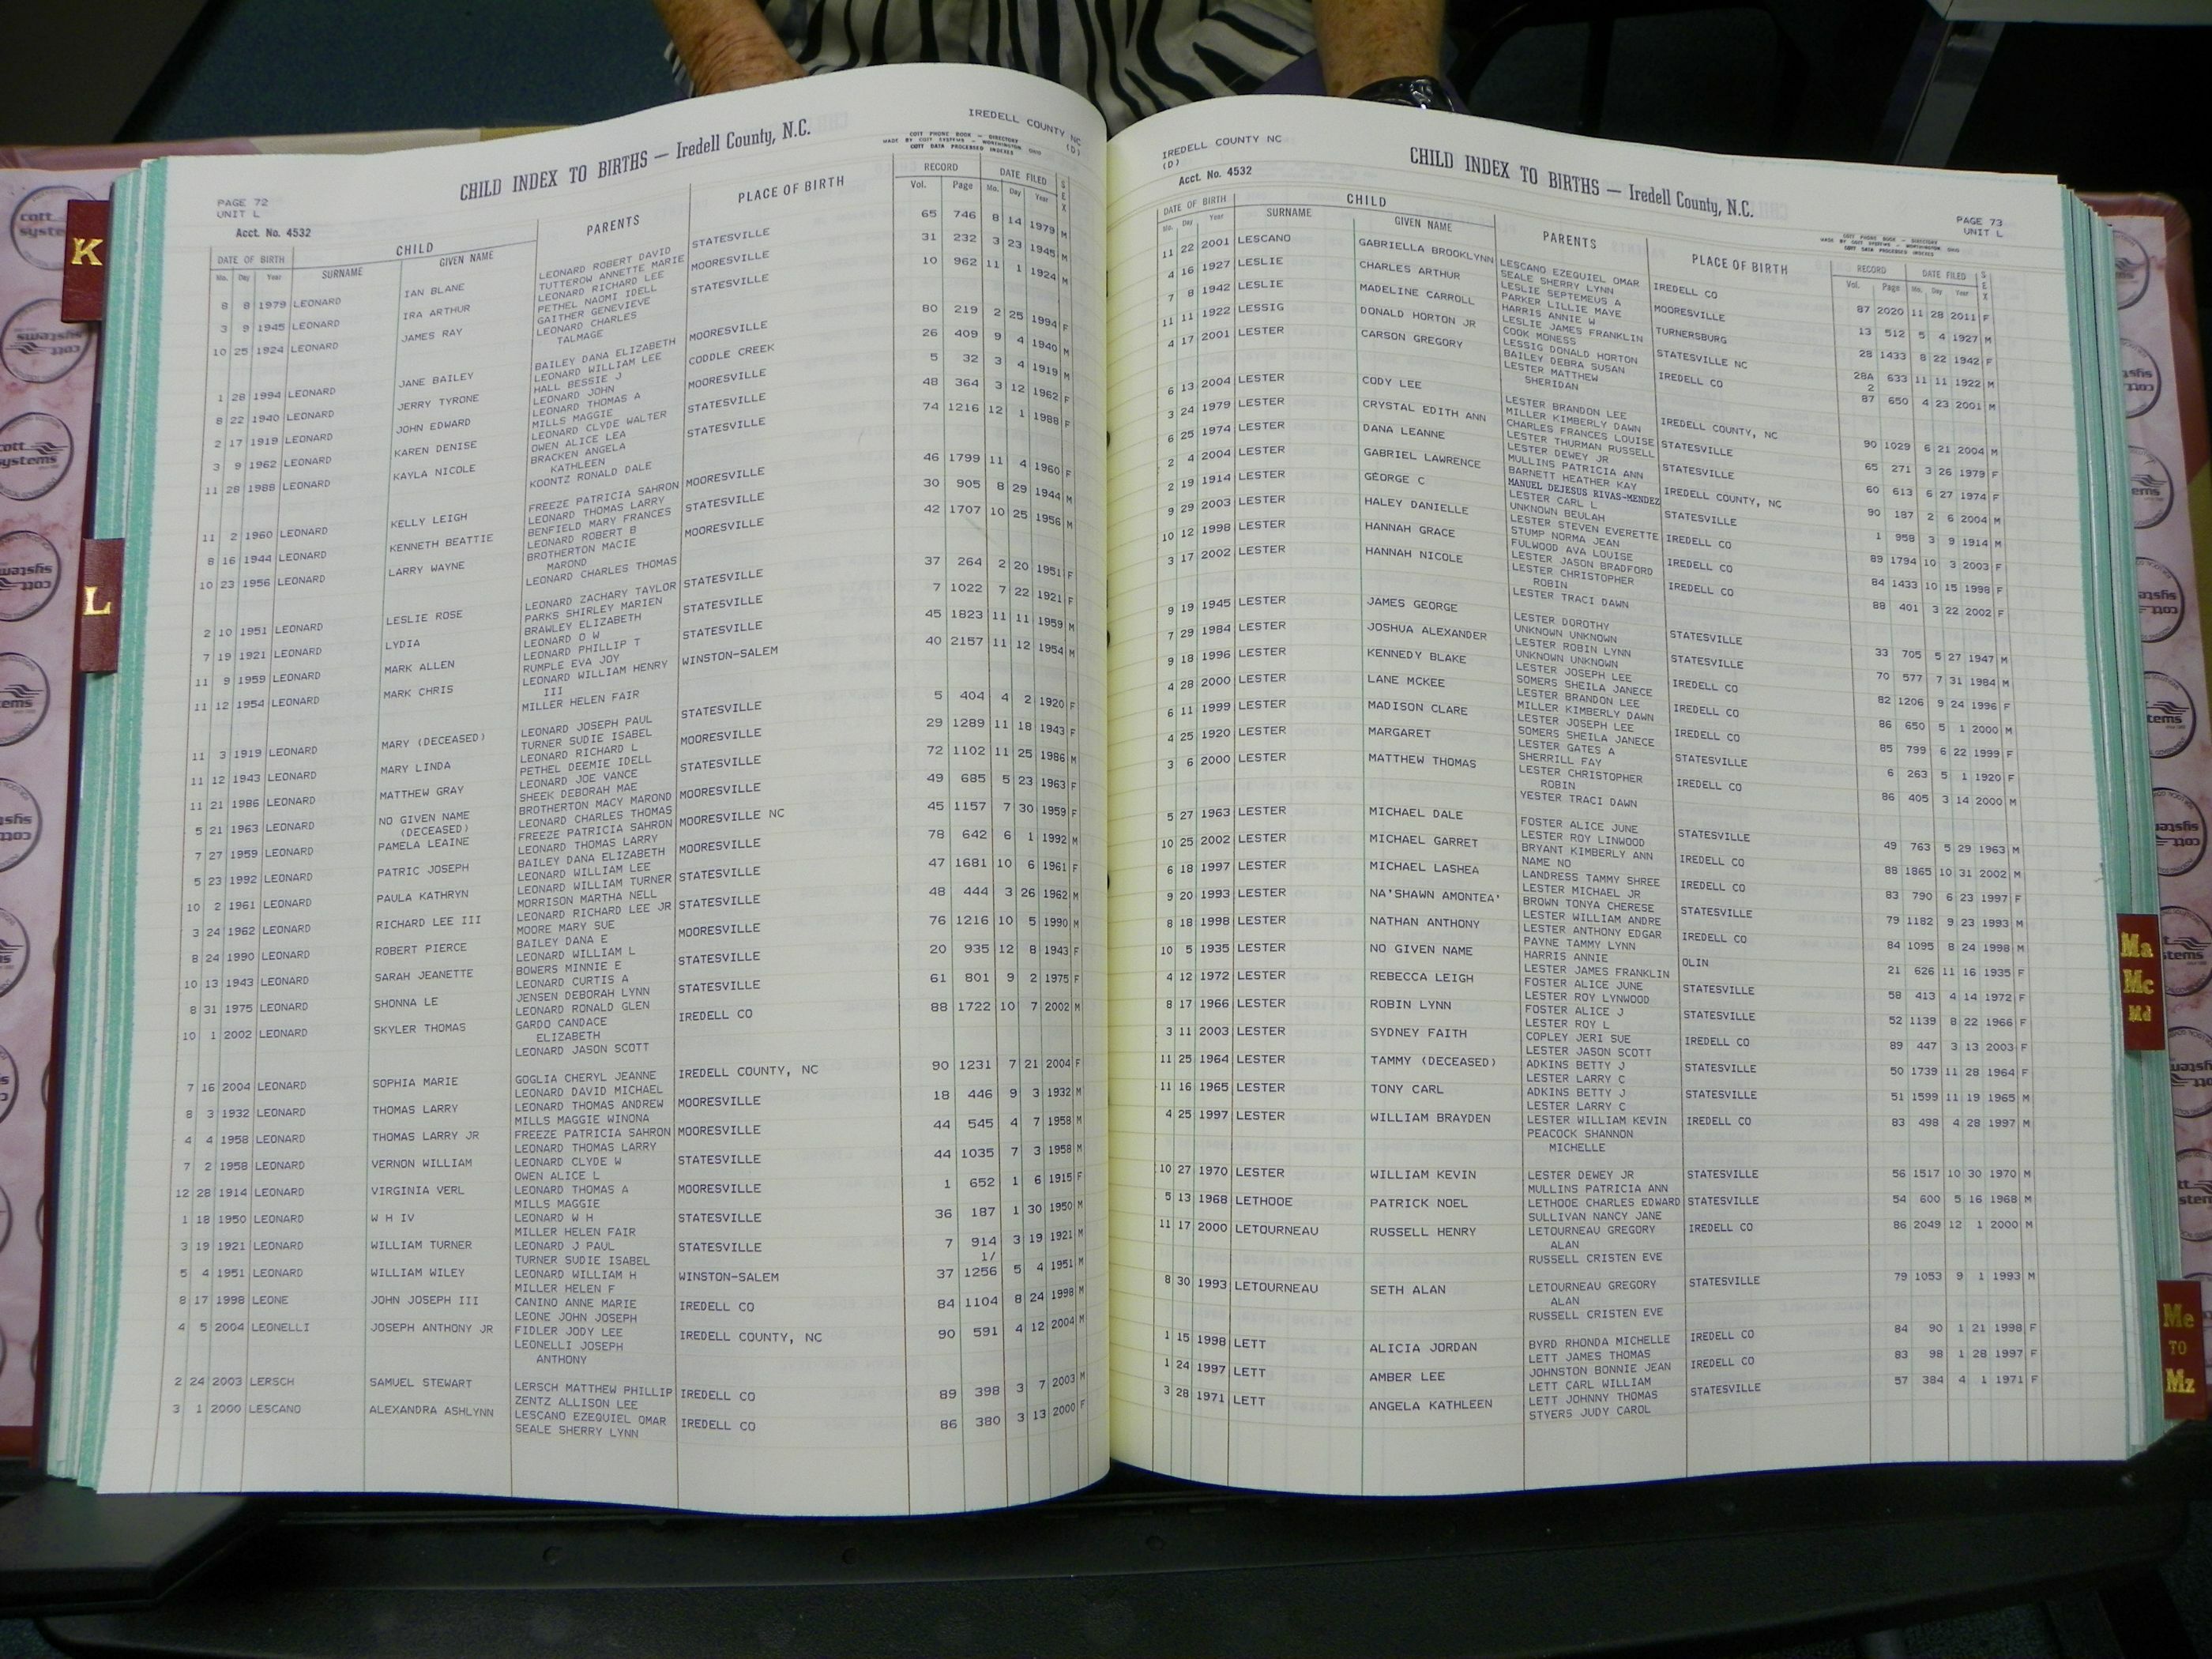 IREDELL COUNTY NC
(D)
CHILD INDEX TO BIRTHS — Iredell County, N.C.
COTT PHONE BOOK — DIRECTORY
MADE BY COTT SYSTEMS — WORTHINGTON OHIO
COTT DATA PROCESSED INDEXES
PAGE 72
UNIT L
Acct. No. 4532
DATE OF BIRTH CHILD PARENTS PLACE OF BIRTH RECORD DATE FILED SEX
Mo. Day Year SURNAME GIVEN NAME Vol. Page Mo. Day Year
8 8 1979 LEONARD IAN BLANE LEONARD ROBERT DAVID STATESVILLE 65 746 8 14 1979 M
TUTTEROW ANNETTE MARIE
3 9 1945 LEONARD IRA ARTHUR LEONARD RICHARD LEE MOORESVILLE 31 232 3 23 1945 M
PETHEL NAOMI IDELL
10 25 1924 LEONARD JAMES RAY GAITHER GENEVIEVE STATESVILLE 10 962 11 1 1924 M
LEONARD CHARLES
TALMAGE
1 28 1994 LEONARD JANE BAILEY BAILEY DANA ELIZABETH MOORESVILLE 80 219 2 25 1994 F
LEONARD WILLIAM LEE
8 22 1940 LEONARD JERRY TYRONE HALL BESSIE J CODDLE CREEK 26 409 9 4 1940 M
LEONARD JOHN
2 17 1919 LEONARD JOHN EDWARD LEONARD THOMAS A MOORESVILLE 5 32 3 4 1919 M
MILLS MAGGIE
3 9 1962 LEONARD KAREN DENISE LEONARD CLYDE WALTER STATESVILLE 48 364 3 12 1962 F
OWEN ALICE LEA
11 28 1988 LEONARD KAYLA NICOLE BRACKEN ANGELA STATESVILLE 74 1216 12 1 1988 F
KATHLEEN
KOONTZ RONALD DALE
11 2 1960 LEONARD KELLY LEIGH FREEZE PATRICIA SAHRON MOORESVILLE 46 1799 11 4 1960 F
LEONARD THOMAS LARRY
8 16 1944 LEONARD KENNETH BEATTIE BENFIELD MARY FRANCES STATESVILLE 30 905 8 29 1944 M
LEONARD ROBERT B
10 23 1956 LEONARD LARRY WAYNE BROTHERTON MACIE MOORESVILLE 42 1707 10 25 1956 M
MAROND
LEONARD CHARLES THOMAS
2 10 1951 LEONARD LESLIE ROSE LEONARD ZACHARY TAYLOR STATESVILLE 37 264 2 20 1951 F
PARKS SHIRLEY MARIEN
7 19 1921 LEONARD LYDIA BRAWLEY ELIZABETH STATESVILLE 7 1022 7 22 1921 F
LEONARD O W
11 9 1959 LEONARD MARK ALLEN LEONARD PHILLIP T STATESVILLE 45 1823 11 11 1959 M
RUMPLE EVA JOY
11 12 1954 LEONARD MARK CHRIS LEONARD WILLIAM HENRY WINSTON-SALEM 40 2157 11 12 1954 M
III
MILLER HELEN FAIR
11 3 1919 LEONARD MARY (DECEASED) LEONARD JOSEPH PAUL STATESVILLE 5 404 4 2 1920 F
TURNER SUDIE ISABEL
11 12 1943 LEONARD MARY LINDA LEONARD RICHARD L MOORESVILLE 29 1289 11 18 1943 F
PETHEL DEEMIE IDELL
11 21 1986 LEONARD MATTHEW GRAY LEONARD JOE VANCE STATESVILLE 72 1102 11 25 1986 M
SHEEK DEBORAH MAE
5 21 1963 LEONARD NO GIVEN NAME BROTHERTON MACY MAROND MOORESVILLE 49 685 5 23 1963 F
(DECEASED) LEONARD CHARLES THOMAS
7 27 1959 LEONARD PAMELA LEAINE FREEZE PATRICIA SAHRON MOORESVILLE NC 45 1157 7 30 1959 F
LEONARD THOMAS LARRY
5 23 1992 LEONARD PATRIC JOSEPH BAILEY DANA ELIZABETH MOORESVILLE 78 642 6 1 1992 M
LEONARD WILLIAM LEE
10 2 1961 LEONARD PAULA KATHRYN LEONARD WILLIAM TURNER STATESVILLE 47 1681 10 6 1961 F
MORRISON MARTHA NELL
3 24 1962 LEONARD RICHARD LEE III LEONARD RICHARD LEE JR STATESVILLE 48 444 3 26 1962 M
MOORE MARY SUE
8 24 1990 LEONARD ROBERT PIERCE BAILEY DANA E MOORESVILLE 76 1216 10 5 1990 M
LEONARD WILLIAM L
10 13 1943 LEONARD SARAH JEANETTE BOWERS MINNIE E STATESVILLE 20 935 12 8 1943 F
LEONARD CURTIS A
8 31 1975 LEONARD SHONNA LE JENSEN DEBORAH LYNN STATESVILLE 61 801 9 2 1975 F
LEONARD RONALD GLEN
10 1 2002 LEONARD SKYLER THOMAS GARDO CANDACE IREDELL CO 88 1722 10 7 2002 M
ELIZABETH
LEONARD JASON SCOTT
7 16 2004 LEONARD SOPHIA MARIE GOGLIA CHERYL JEANNE IREDELL COUNTY, NC 90 1231 7 21 2004 F
LEONARD DAVID MICHAEL
8 3 1932 LEONARD THOMAS LARRY LEONARD THOMAS ANDREW MOORESVILLE 18 446 9 3 1932 M
MILLS MAGGIE WINONA
4 4 1958 LEONARD THOMAS LARRY JR FREEZE PATRICIA SAHRON MOORESVILLE 44 545 4 7 1958 M
LEONARD THOMAS LARRY
7 2 1958 LEONARD VERNON WILLIAM LEONARD CLYDE W STATESVILLE 44 1035 7 3 1958 M
OWEN ALICE L
12 28 1914 LEONARD VIRGINIA VERL LEONARD THOMAS A MOORESVILLE 1 652 1 6 1915 F
MILLS MAGGIE
1 18 1950 LEONARD W H IV LEONARD W H STATESVILLE 36 187 1 30 1950 M
MILLER HELEN FAIR
3 19 1921 LEONARD WILLIAM TURNER LEONARD J PAUL STATESVILLE 7 914 3 19 1921 M
TURNER SUDIE ISABEL 1/
5 4 1951 LEONARD WILLIAM WILEY LEONARD WILLIAM H WINSTON-SALEM 37 1256 5 4 1951 M
MILLER HELEN F
8 17 1998 LEONE JOHN JOSEPH III CANINO ANNE MARIE IREDELL CO 84 1104 8 24 1998 M
LEONE JOHN JOSEPH
4 5 2004 LEONELLI JOSEPH ANTHONY JR FIDLER JODY LEE IREDELL COUNTY, NC 90 591 4 12 2004 M
LEONELLI JOSEPH
ANTHONY
2 24 2003 LERSCH SAMUEL STEWART LERSCH MATTHEW PHILLIP IREDELL CO 89 398 3 7 2003 M
ZENTZ ALLISON LEE
3 1 2000 LESCANO ALEXANDRA ASHLYNN LESCANO EZEQUIEL OMAR IREDELL CO 86 380 3 13 2000 F
SEALE SHERRY LYNN
IREDELL COUNTY NC
(D)
CHILD INDEX TO BIRTHS — Iredell County, N.C.
Acct. No. 4532
PAGE 73
UNIT L
COTT PHONE BOOK — DIRECTORY
MADE BY COTT SYSTEMS — WORTHINGTON OHIO
COTT DATA PROCESSED INDEXES
DATE OF BIRTH CHILD PARENTS PLACE OF BIRTH RECORD DATE FILED SEX
Mo. Day Year SURNAME GIVEN NAME Vol. Page Mo. Day Year
11 22 2001 LESCANO GABRIELLA BROOKLYNN LESCANO EZEQUIEL OMAR IREDELL CO 87 2020 11 28 2011 F
SEALE SHERRY LYNN
4 16 1927 LESLIE CHARLES ARTHUR LESLIE SEPTEMEUS A MOORESVILLE 13 512 5 4 1927 M
PARKER LILLIE MAYE
7 8 1942 LESLIE MADELINE CARROLL HARRIS ANNIE W TURNERSBURG 28 1433 8 22 1942 F
LESLIE JAMES FRANKLIN
11 11 1922 LESSIG DONALD HORTON JR COOK MONESS STATESVILLE NC 28A 633 11 11 1922 M
LESSIG DONALD HORTON 2
4 17 2001 LESTER CARSON GREGORY BAILEY DEBRA SUSAN IREDELL CO 87 650 4 23 2001 M
LESTER MATTHEW
SHERIDAN
6 13 2004 LESTER CODY LEE LESTER BRANDON LEE IREDELL COUNTY, NC 90 1029 6 21 2004 M
MILLER KIMBERLY DAWN
3 24 1979 LESTER CRYSTAL EDITH ANN CHARLES FRANCES LOUISE STATESVILLE 65 271 3 26 1979 F
LESTER THURMAN RUSSELL
6 25 1974 LESTER DANA LEANNE LESTER DEWEY JR STATESVILLE 60 613 6 27 1974 F
MULLINS PATRICIA ANN
2 4 2004 LESTER GABRIEL LAWRENCE BARNETT HEATHER KAY IREDELL COUNTY, NC 90 187 2 6 2004 M
MANUEL DEJESUS RIVAS-MENDEZ
2 19 1914 LESTER GEORGE C LESTER CARL L STATESVILLE 1 958 3 9 1914 M
UNKNOWN BEULAH
9 29 2003 LESTER HALEY DANIELLE LESTER STEVEN EVERETTE IREDELL CO 89 1794 10 3 2003 F
STUMP NORMA JEAN
10 12 1998 LESTER HANNAH GRACE FULWOOD AVA LOUISE IREDELL CO 84 1433 10 15 1998 F
LESTER JASON BRADFORD
3 17 2002 LESTER HANNAH NICOLE LESTER CHRISTOPHER IREDELL CO 88 401 3 22 2002 F
ROBIN
LESTER TRACI DAWN
9 19 1945 LESTER JAMES GEORGE LESTER DOROTHY STATESVILLE 33 705 5 27 1947 M
UNKNOWN UNKNOWN
7 29 1984 LESTER JOSHUA ALEXANDER LESTER ROBIN LYNN STATESVILLE 70 577 7 31 1984 M
UNKNOWN UNKNOWN
9 18 1996 LESTER KENNEDY BLAKE LESTER JOSEPH LEE IREDELL CO 82 1206 9 24 1996 F
SOMERS SHEILA JANECE
4 28 2000 LESTER LANE MCKEE LESTER BRANDON LEE IREDELL CO 86 650 5 1 2000 M
MILLER KIMBERLY DAWN
6 11 1999 LESTER MADISON CLARE LESTER JOSEPH LEE IREDELL CO 85 799 6 22 1999 F
SOMERS SHEILA JANECE
4 25 1920 LESTER MARGARET LESTER GATES A STATESVILLE 6 263 5 1 1920 F
SHERRILL FAY
3 6 2000 LESTER MATTHEW THOMAS LESTER CHRISTOPHER IREDELL CO 86 405 3 14 2000 M
ROBIN
YESTER TRACI DAWN
5 27 1963 LESTER MICHAEL DALE FOSTER ALICE JUNE STATESVILLE 49 763 5 29 1963 M
LESTER ROY LINWOOD
10 25 2002 LESTER MICHAEL GARRET BRYANT KIMBERLY ANN IREDELL CO 88 1865 10 31 2002 M
NAME NO
6 18 1997 LESTER MICHAEL LASHEA LANDRESS TAMMY SHREE IREDELL CO 83 790 6 23 1997 F
LESTER MICHAEL JR
9 20 1993 LESTER NA'SHAWN AMONTEA' BROWN TONYA CHERESE STATESVILLE 79 1182 9 23 1993 M
LESTER WILLIAM ANDRE
8 18 1998 LESTER NATHAN ANTHONY LESTER ANTHONY EDGAR IREDELL CO 84 1095 8 24 1998 M
PAYNE TAMMY LYNN
10 5 1935 LESTER NO GIVEN NAME HARRIS ANNIE OLIN 21 626 11 16 1935 F
LESTER JAMES FRANKLIN
4 12 1972 LESTER REBECCA LEIGH FOSTER ALICE JUNE STATESVILLE 58 413 4 14 1972 F
LESTER ROY LYNWOOD
8 17 1966 LESTER ROBIN LYNN FOSTER ALICE J STATESVILLE 52 1139 8 22 1966 F
LESTER ROY L
3 11 2003 LESTER SYDNEY FAITH COPLEY JERI SUE IREDELL CO 89 447 3 13 2003 F
LESTER JASON SCOTT
11 25 1964 LESTER TAMMY (DECEASED) ADKINS BETTY J STATESVILLE 50 1739 11 28 1964 F
LESTER LARRY C
11 16 1965 LESTER TONY CARL ADKINS BETTY J STATESVILLE 51 1599 11 19 1965 M
LESTER LARRY C
4 25 1997 LESTER WILLIAM BRAYDEN LESTER WILLIAM KEVIN IREDELL CO 83 498 4 28 1997 M
PEACOCK SHANNON
MICHELLE
10 27 1970 LESTER WILLIAM KEVIN LESTER DEWEY JR STATESVILLE 56 1517 10 30 1970 M
MULLINS PATRICIA ANN
5 13 1968 LETHODE PATRICK NOEL LETHODE CHARLES EDWARD STATESVILLE 54 600 5 16 1968 M
SULLIVAN NANCY JANE
11 17 2000 LETOURNEAU RUSSELL HENRY LETOURNEAU GREGORY IREDELL CO 86 2049 12 1 2000 M
ALAN
RUSSELL CRISTEN EVE
8 30 1993 LETOURNEAU SETH ALAN LETOURNEAU GREGORY STATESVILLE 79 1053 9 1 1993 M
ALAN
RUSSELL CRISTEN EVE
1 15 1998 LETT ALICIA JORDAN BYRD RHONDA MICHELLE IREDELL CO 84 90 1 21 1998 F
LETT JAMES THOMAS
1 24 1997 LETT AMBER LEE JOHNSTON BONNIE JEAN IREDELL CO 83 98 1 28 1997 F
LETT CARL WILLIAM
3 28 1971 LETT ANGELA KATHLEEN LETT JOHNNY THOMAS STATESVILLE 57 384 4 1 1971 F
STYERS JUDY CAROL
K
L
Ma
Mc
Md
Me
TO
Mz
cott
systems